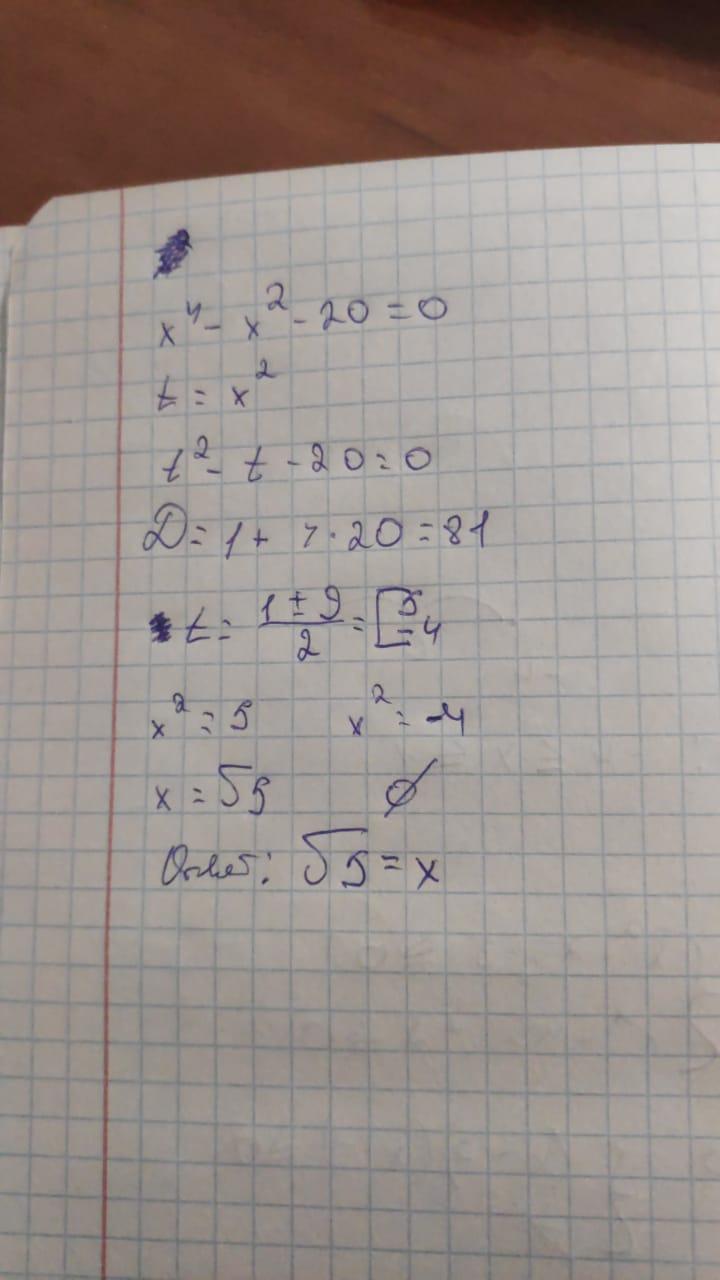 x⁴ - x² - 20 = 0
t = x²
t² - t - 20 = 0
D = 1 + 4 · 20 = 81
t = (1 ± 9)/2 = [5 -4
x² = 5 x² = -4
x = √5 ∅
Ответ: √5 = x